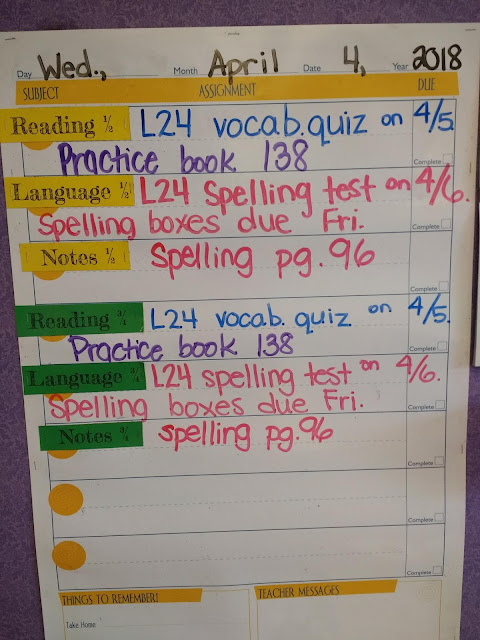 Day Wed., Month April Date 4, Year 2018
SUBJECT ASSIGNMENT DUE
Reading ½ L24 vocab. quiz on 4/5.
Practice book 138
Complete
Language ½ L24 Spelling test on 4/6.
Spelling boxes due Fri.
Complete
Notes ½ Spelling pg. 96
Complete
Reading ¾ L24 vocab. quiz on 4/5.
Practice book 138
Complete
Language ¾ L24 spelling test on 4/6.
Spelling boxes due Fri.
Complete
Notes ¾ spelling pg. 96
Complete
Complete
Complete
THINGS TO REMEMBER! TEACHER MESSAGES
Take Home